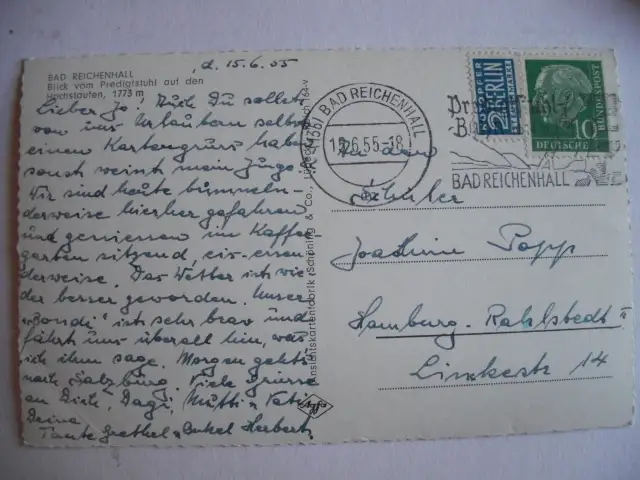 BAD REICHENHALL
Blick vom Predigtstuhl auf den
Hochstaufen, 1773 m
d. 15.6.55
Lieber Jo! Auch Du sollst
von uns Urlaubern selbst
einen Kartengruss haben
sonst weint mein Junge.
Wir sind heute bummeln-
derweise hierher gefahren
und geniessen im Kaffee-
garten sitzend, eis-essen-
derweise. Das Wetter ist wie-
der besser geworden. Unser
"Bondi" ist sehr brav und
fährt uns überall hin, was
ich ihm sage. Morgen geht's
nach Salzburg. Viele Grüsse
an Dich, Dagi, Mutti u. Vati
Deine
Tante Grethel u. Onkel Herbert
Ansichtskartenfabrik Schöning & Co., Lübeck
Agfa
BAD REICHENHALL
15.6.55-18
NOTOPFER
2 BERLIN
STEUERMARKE
DEUTSCHE
BUNDESPOST
10
BAD REICHENHALL
An den
Schüler
Joachim Popp
Hamburg-Rahlstedt
Linzkestr 14